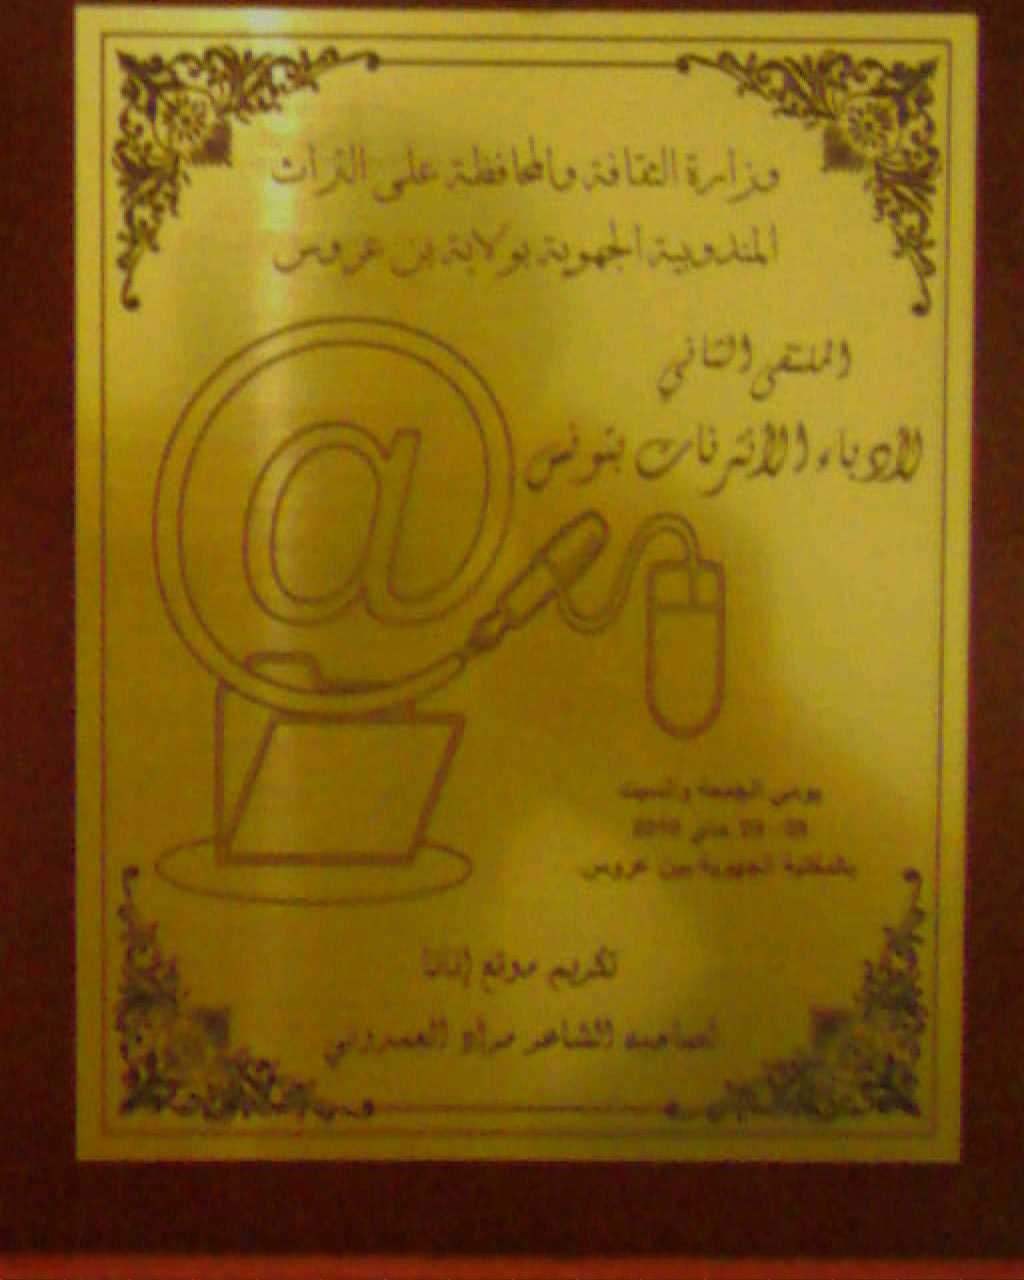 وزارة الثقافة والمحافظة على التراث
المندوبية الجهوية بولاية بن عروس
الملتقى الثاني
لأدباء الأنترنات بتونس
يومي الجمعة والسبت
ماي 2010
بالمكتبة الجهوية ببن عروس
تكريم موقع إنانا
لصاحبه الشاعر مراد العمدوني